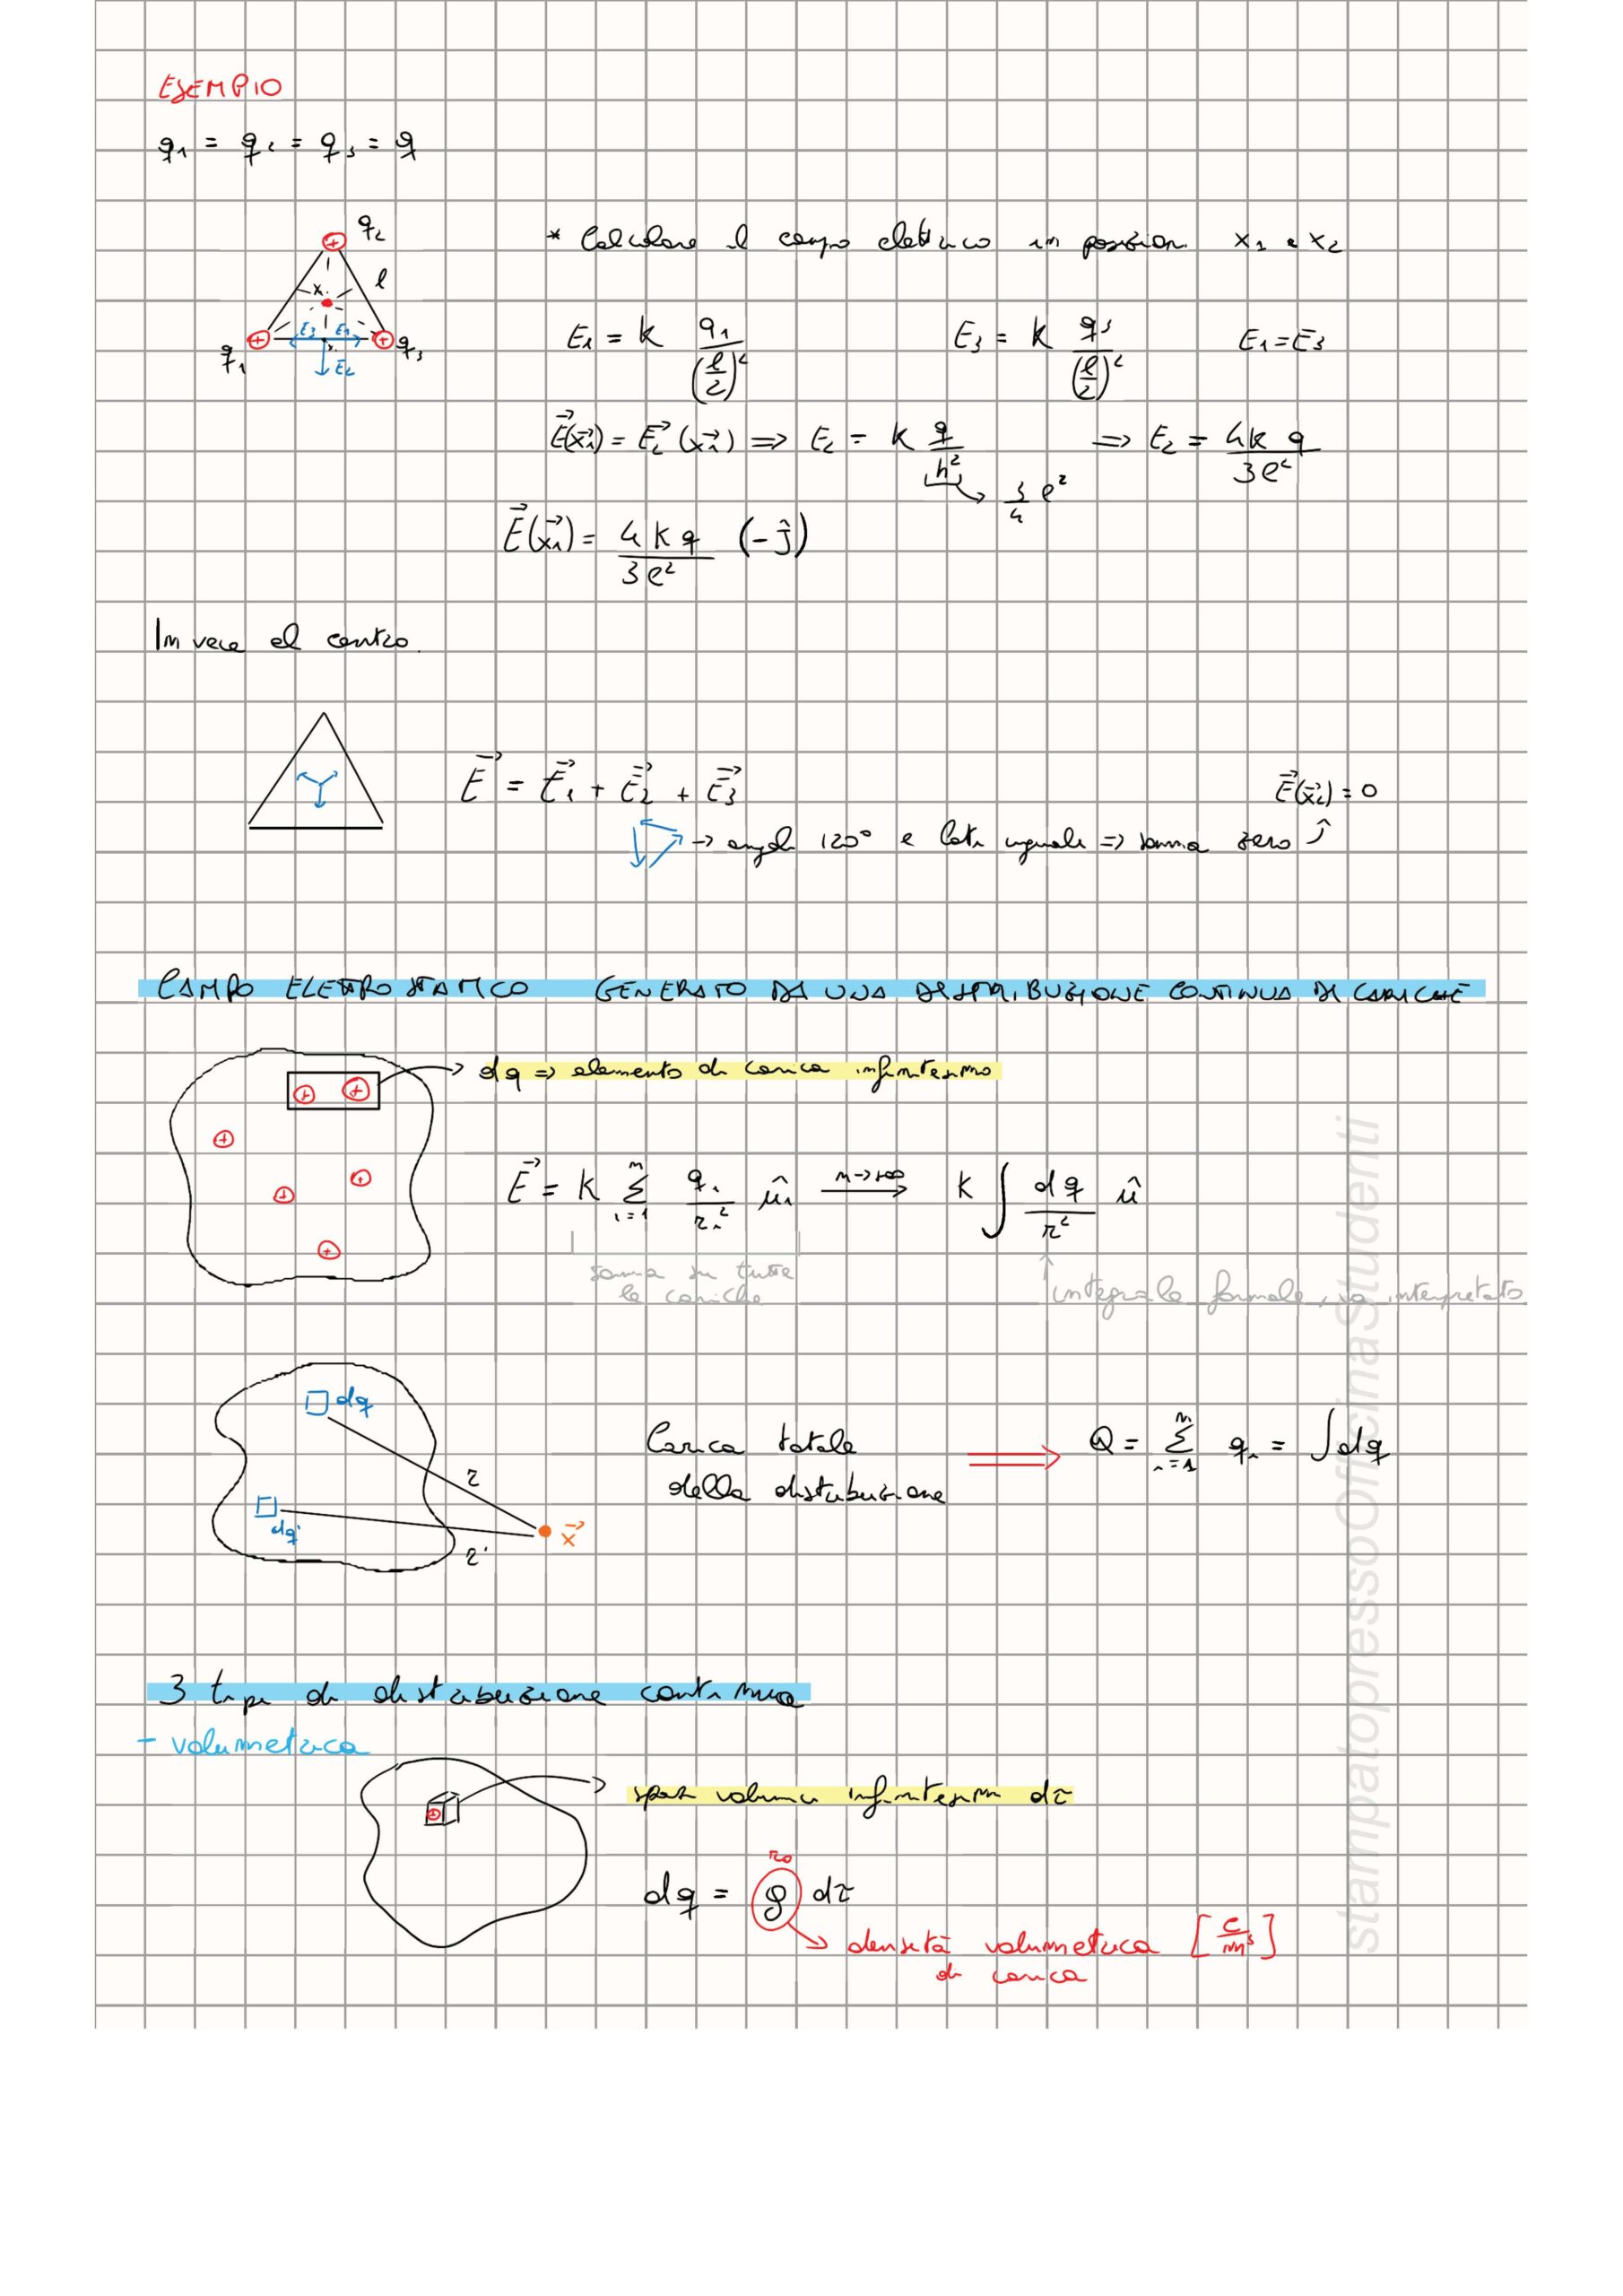 ESEMPIO
q₁ = q₂ = q₃ = q
q₂
* Calcolare il campo elettrico in posizioni x₁ e x₂
l
x₂
E₃ E₁
q₁ q₃
E₂
E₁ = k q₁/(l/2)² E₃ = k q₃/(l/2)² E₁ = E₃
E⃗(x⃗₁) = E⃗₂(x⃗₁) => E₂ = k q/h² => E₂ = 4k q/3l²
3/4 l²
E⃗(x⃗₁) = 4kq/3l² (-ĵ)
Invece al centro.
E⃗ = E⃗₁ + E⃗₂ + E⃗₃ E⃗(x⃗₂) = 0
-> angoli 120° e lati uguali => somma zero ↑
CAMPO ELETTROSTATICO GENERATO DA UNA DISTRIBUZIONE CONTINUA DI CARICHE
dq => elemento di carica infinitesimo
E⃗ = k Σᵢ₌₁ⁿ qᵢ/rᵢ² ûᵢ n->+∞ k ∫ dq/r² û
somma su tutte
le cariche
integrale formale, va interpretato
dq
Carica totale => Q = Σᵢ₌₁ⁿ qᵢ = ∫dq
della distribuzione
r
dq'
x⃗
r'
3 tipi di distribuzione continua
- volumetrica
volume infinitesimi dτ
ro
dq = ρ dτ
densità volumetrica [C/m³]
di carica
stampatopressoOfficinaStudenti